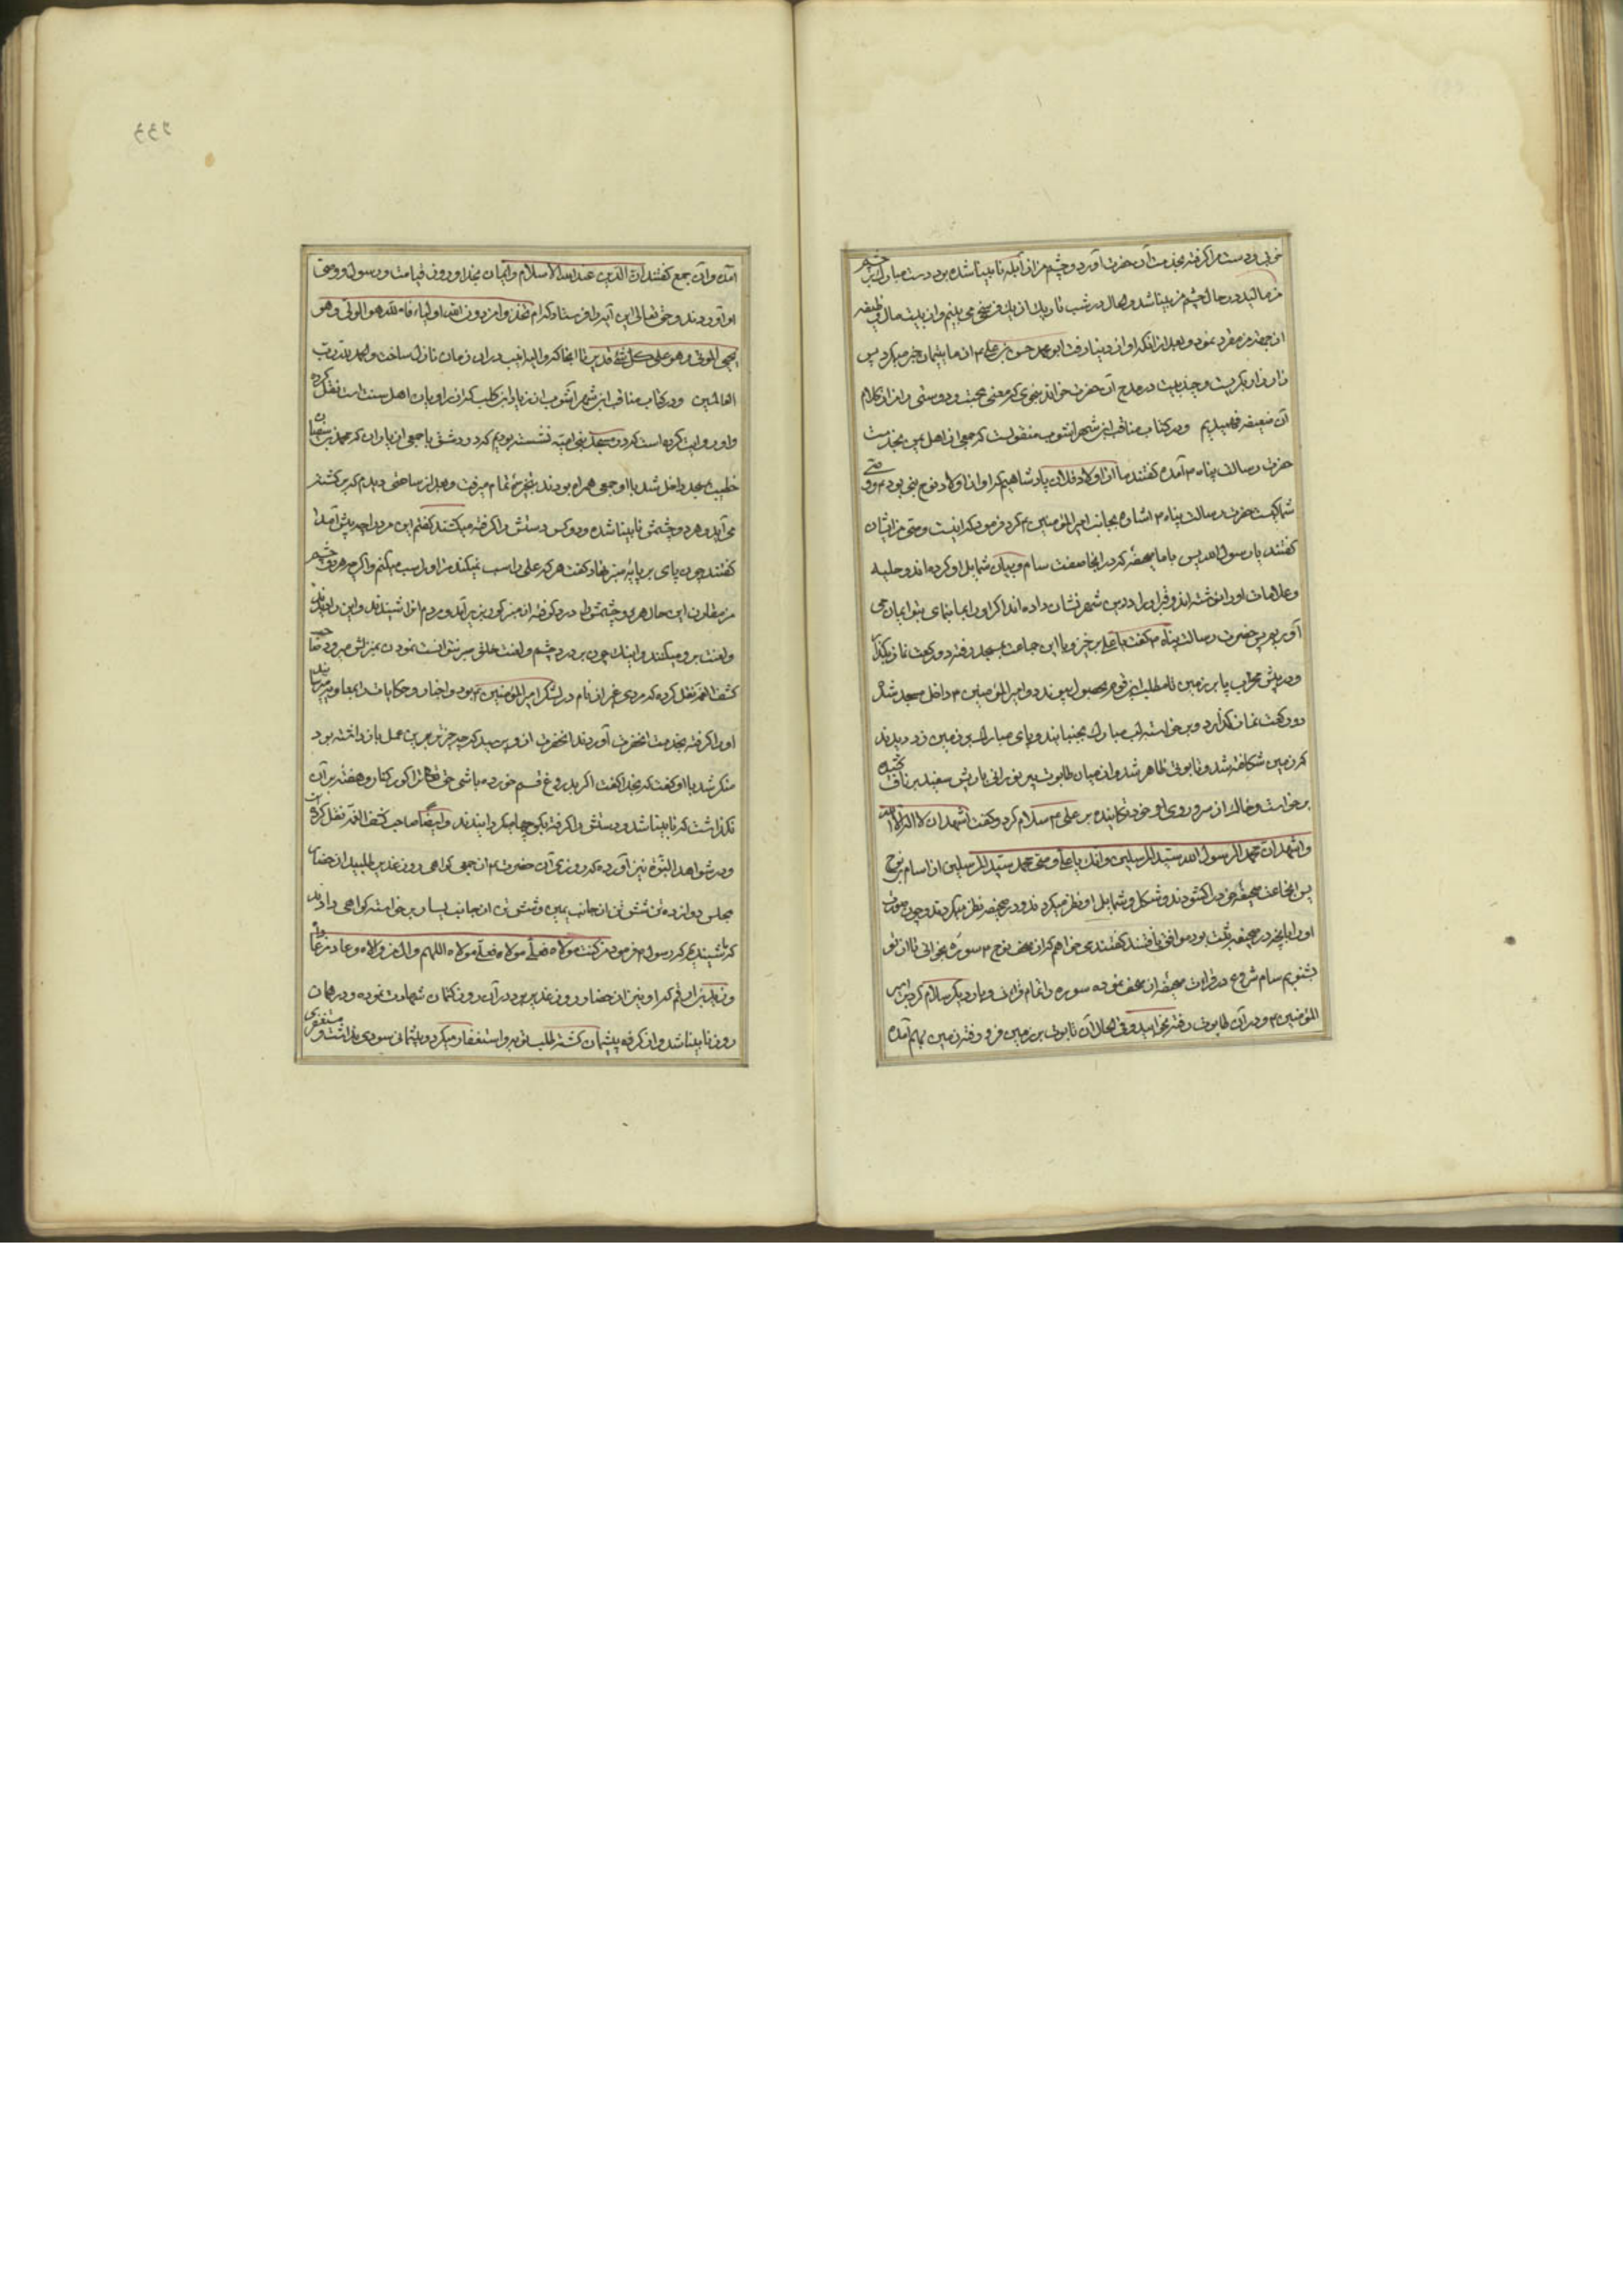 خوبی و دست مرا گرفته بخدمت آن حضرت آورد و چشم من از آبله نابینا شده بود دست مبارک بر چشم
من مالید در حال چشم من بینا شد و الحال در شب تاریک از یک فرسخی می بینم و از بیت مال وظیفه
از جهة من مقرر نمود و بعد از انکه او از دنیا رفت ابو محمد حسن بن علی ع از ما یتیمان خبر میگرد پس
زار زار بگریست و چند بیت در مدح آن حضرت خواند بنحوی که معنی محبت و دوستی را از کلام
آن ضعیفه فهمیدیم و در کتاب مناقب ابن شهر اشوب منقولست که جمعی از اهل یمن بخدمت
حضرت رسالت پناه ص آمدند گفتند ما از اولاد فلان پادشاهیم که او از اولاد نوح نبی بود ع و وصی
شما کیست حضرت رسالت پناه ص اشاره بجانب امیر المؤمنین ع کرد فرمود که اینست وصی من ایشان
گفتند یا رسول الله پس با ما صحیفه که در انجا صفت سام و بیان شمایل او کرده اند و حلیه
و علامات او را نوشته اند و قبر او را در این شهر نشان داده اند اگر او را بما بنمای بتو ایمان می
آوریم پس حضرت رسالت پناه ص گفت یا علی بر خیز و با این جماعت بمسجد رفته دو رکعت نماز بگذار
و در پیش محراب پا بر زمین تا مطلب این قوم بحصول پیوندد و امیر المؤمنین ع داخل مسجد شد
دو رکعت نماز گذارد و برخاسته لب مبارک بجنبانید و پای مبارک بر زمین زد دیدند
که زمین شکافته شد و تابوتی ظاهر شد و از میان تابوت پیر نورانی با ریش سفید بر ناف کشیده
برخاست و خاک از سر و روی او خود تکانیده بر علی ع سلام کرد و گفت اشهد ان لا اله الا الله
و اشهد ان محمد رسول الله سید المرسلین و انک یا علی وصی محمد سید المرسلین انا سام بن نوح
پس انجماعت صحیفه خود را گشودند و شکل و شمایل او نظر میکردند و در صحیفه نظر میکردند و چون صورت
او را با انچه در صحیفه ثبت بود موافق یافتند گفتند می خواهم که از صحف نوح ع سوره بخوانی تا از تو
بشنویم سام شروع در قرائت صحیفه از صحف نموده سوره را تمام خواند و بار دیگر سلام کرد بر امیر
المؤمنین ع و در آن تابوت رفته بخوابید و فی الحال آن تابوت بر زمین فرو رفته زمین بهم آمده
۲۳۳
آمد و آن جمع گفتند ان الدین عند الله الاسلام و ایمان بخدا و روز قیامت و رسول و وصی
او آوردند و حق تعالی این آیه را فرستاد که ام اتخذوا من دونه اولیاء فالله هو الولی و هو
یحیی الموتی و هو علی کل شئ قدیر تا انجا که و الیه انیب در ان زمان نازل ساخت و الحمد لله رب
العالمین و در کتاب مناقب ابن شهر آشوب از زیاد بن کلیب که از راویان اهل سنت است نقل کرده
و او روایت کرده است که در مسجد بنی امیه نشسته بودیم که در دمشق با جمعی از یاران که محمد بن صفوان
خطیب بمسجد داخل شد با او جمعی همراه بودند بتبختر تمام میرفت و بعد از ساعتی دیدم که برگشته
می آید و هر دو چشمش نابینا شده و دو کس دستش را گرفته میکشند گفتم این مرد را چه پیش آمد
گفتند چون پای بر پایه منبر نهاد گفت هر که علی را سب نمیکند من او را سب میکنم و اگر چه هر دو چشم
من مقارن این حال هر دو چشمش را درد گرفته از منبر کور بزیر آمد و مردم او را شنیدند و این را دیدند
و لعنت بر و میکنند و اینک چون بر درد چشم و لعنت خلق صبر نتوانست نمودن بمنزلش میرود صاحب
کشف الغمه نقل کرده که مردی غیزار نام در لشکر امیر المؤمنین ع بود و اخبار و حکایات را بمعاویه میرسانید
او را گرفته بخدمت انحضرت آوردند انحضرت از و پرسید که چه چیز تو بر این عمل باز داشته بود
منکر شد با او گفت که بخدا گفت اگر بدروغ قسم خورده باشی حق تعالی ترا کور کناد و هفته بر آن
نگذاشت که نابینا شد و دستش را گرفته بکوچها میگردانیدند و ایضا صاحب کشف الغمه نقل کرده است
و در شواهد النبوة نیز آورده که روزی آن حضرت ع از جمعی گواهی روز غدیر طلبید از حضار
مجلس دوازده تن شش تن از جانب یمین و شش تن از جانب یسار برخاسته گواهی دادند
که ما شنیدیم که رسول ص فرمود من کنت مولاه فعلی مولاه اللهم وال من والاه و عاد من عاداه
و زید بن ارقم که او نیز از حضار روز غدیر بود در آن روز کتمان شهادت نموده و در همان
روز نابینا شد و از کرده پشیمان گشته طلب توبه و استغفار میکرد و پشیمانی سودی نداشت و مستغفری